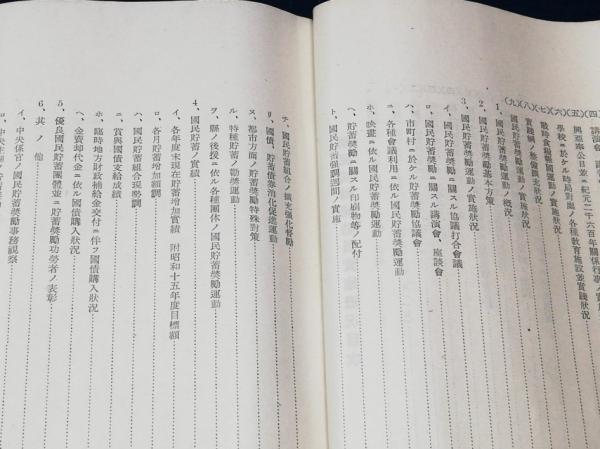 (四)講演會
(五)興亞奉公日並ニ紀元二千六百年關係行事ノ實
(六)學校ニ於ケル時局對處ノ各種教育施設並實踐狀況
(七)戰時食糧報國運動ノ實施狀況
(八)實踐網ノ整備擴充狀況
(九)國民貯蓄奬勵運動ノ概況
1、國民貯蓄奬勵基本方策
2、國民貯蓄奬勵運動ノ實施狀況
3、國民貯蓄奬勵ニ關スル協議打合會議
イ、國民貯蓄奬勵ニ關スル講演會、座談會
ロ、市町村ニ於ケル貯蓄奬勵協議會
ハ、各種會議利用ニ依ル國民貯蓄奬勵運動
ニ、映畫ニ依ル國民貯蓄奬勵運動
ホ、貯蓄奬勵ニ關スル印刷物等ノ配付
ヘ、國民貯蓄強調週間ノ實施
ト、
チ、國民貯蓄組合ノ擴充強化督勵
リ、國債、貯蓄債券消化促進運動
ヌ、都市方面ノ貯蓄奬勵特殊對策
ル、特種貯蓄ノ勸奬運動
ヲ、縣ノ後援ニ依ル各種團休ノ國民貯蓄奬勵運動
4、國民貯蓄ノ實績
イ、各年度末現在貯蓄增加實績 附昭和十五年度目標額
ロ、各月貯蓄增加額調
ハ、國民貯蓄組合現勢調
ニ、賞與國債支給成績
ホ、臨時地方財政補給金交付ニ伴フ國債購入狀況
ヘ、金賣却代金ニ依ル國債購入狀況
5、優良國民貯蓄團體並ニ貯蓄奬勵功勞者ノ表彰
6、其ノ他
イ、中央係官ノ國民貯蓄奬勵事務視察
ロ、中央主催ノ